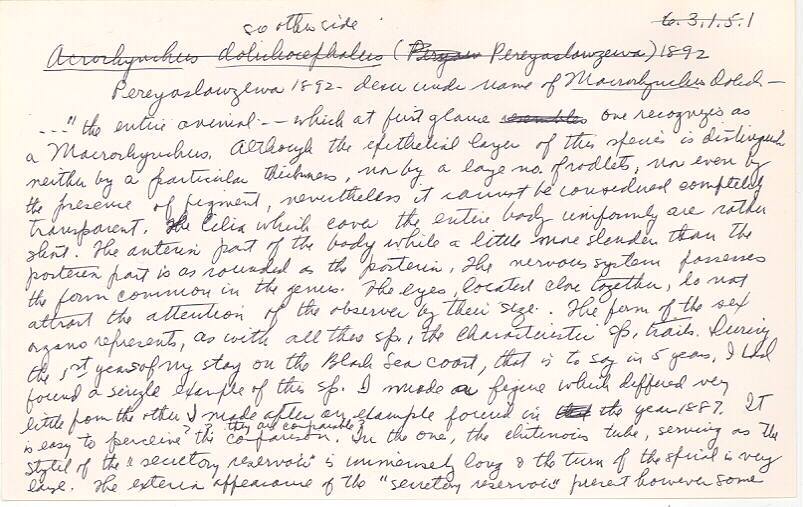 see other side
6.3.1.5.1
Acrorhynchus dolichocephalus (Pereyaslawzewa) 1892
Pereyaslawzewa 1892 - desc under name of Macrorhynchus dolich—
..."the entire animal -- which at first glance resembles one recognizes as
a Macrorhynchus. Although the epithelial layer of this species is distinguish
neither by a particular thickness, nor by a large no. of rodlets, nor even by
the presence of pigment, nevertheless it cannot be considered completely
transparent. The Cilia which cover the entire body uniformly are rather
short. The anterior part of the body while a little more slender than the
posterior part is as rounded as the posterior. The nervous system possesses
the form common in the genus. The eyes, located close together, do not
attract the attention of the observer by their size. The form of the sex
organs represents, as with all these sp., the characteristic sp. traits. During
the 1st years of my stay on the Black Sea coast, that is to say in 5 years, I had
found a single example of this sp. I made a figure which differed very
little from the other I made after an example found in the year 1887. It
is easy to perceive? the comparison. In the one, the chitinous tube, serving as the
? they are comparable?
stylet of the "secretory reservoir" is immensely long & the turn of the spiral is very
large. The exterior appearance of the "secretory reservoir" present however some